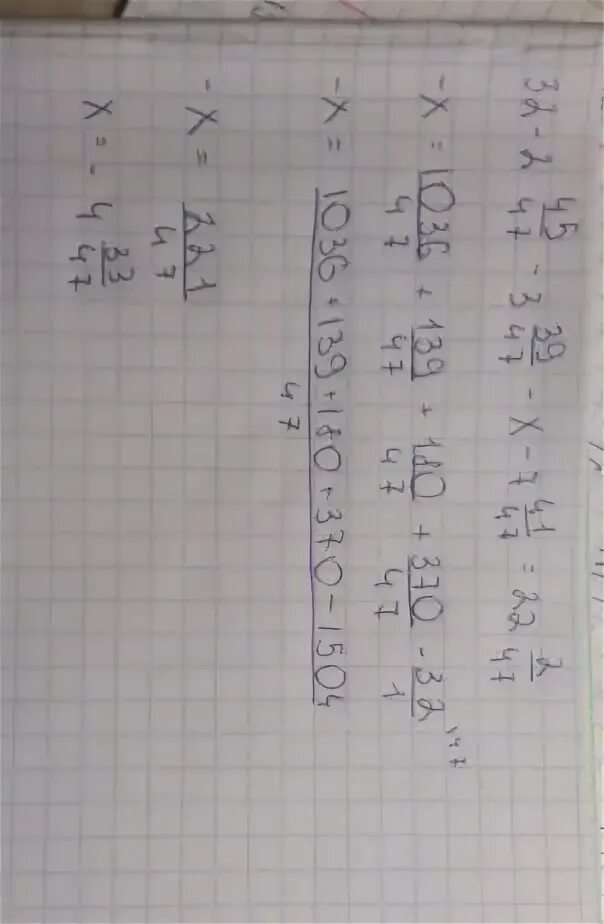 32 - 2 45/47 - 3 39/47 - x - 7 41/47 = 22 2/47
-x = 1036/47 + 139/47 + 180/47 + 370/47 - 32/1 \47
-x = 1036+139+180+370-1504/47
-x = 221/47
x = - 4 33/47